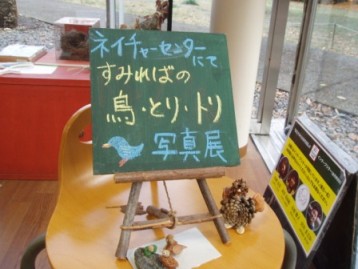 ネイチャーセンターにて
すみればの
鳥・とり・トリ
写真展